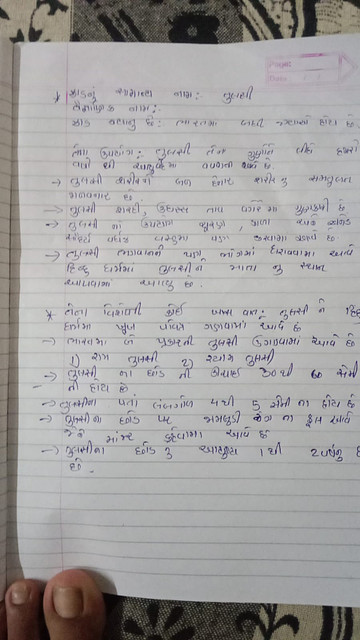 * ઝાડનું સામાન્ય નામ: તુલસી
વૈજ્ઞાનિક નામ:
ઝાડ વધાયુ છે: ભારતમાં બધી જગ્યાએ હોય છે
તેના ઉપયોગ: તુલસી તેના ગુણોને લીધે હજારો
વર્ષો થી આયુર્વેદમાં વપરાતી આવી છે
→ તુલસી શરીરને બળ દેનાર શરીરનુ સમતુલન
જાળવનાર છે
→ તુલસી શરદી, ઉધરસ તાવ વગેરેમાં ગુણકારી છે
→ તુલસી નો ઉપયોગ સૂરણ, કાળા અને
વસ્તુમાં પણ કરવામાં આવે છે
→ તુલસી ભગવાનની પણ ભોગમાં ધરાવવામાં આવે
હિન્દુ ધર્મમાં તુલસીને માતા નુ સ્થાન
આપવામાં આવ્યુ છે.
* તેના વિશેની કોઈ ખાસ વાત: તુલસી ને હિન્દુ
ધર્મમાં ખૂબ પવિત્ર ગણવામાં આવે છે
→ ભારતમાં બે પ્રકારની તુલસી ઉગાડવામાં આવે છે
1) રામ તુલસી 2) શ્યામ તુલસી
→ તુલસી ના છોડ ની ઊંચાઈ 30 થી 60 સેમી
ની હોય છે
→ તુલસીના પતા લંબગોળ 4 થી 5 સેમી ના હોય છે
→ તુલસીના છોડ પર જાંબલી રંગ ના ફૂલ આવે
જેને માંજર કહેવામાં આવે છે
→ તુલસીના છોડ નુ આયુષ્ય 1 થી 2 વર્ષનુ હ
છે.